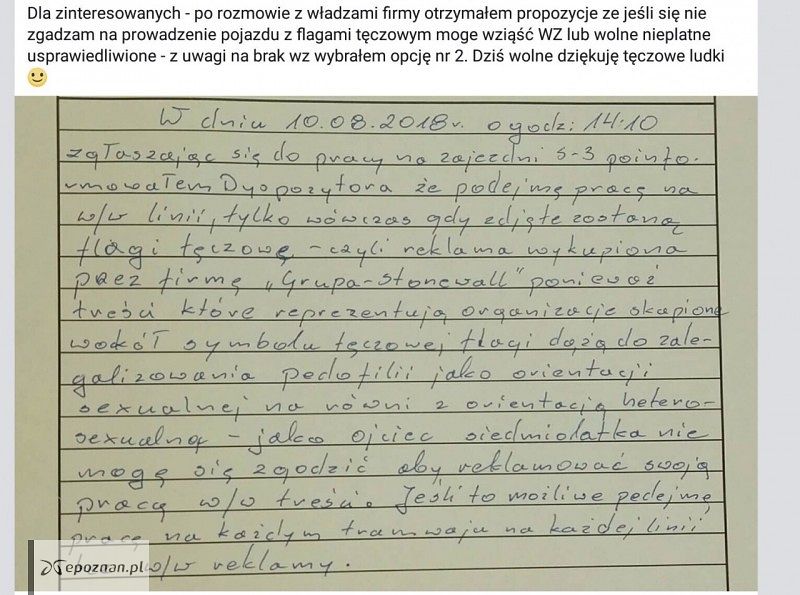 Dla zinteresowanych - po rozmowie z władzami firmy otrzymałem propozycje ze jeśli się nie
zgadzam na prowadzenie pojazdu z flagami tęczowym moge wziąść WZ lub wolne nieplatne
usprawiedliwione - z uwagi na brak wz wybrałem opcję nr 2. Dziś wolne dziękuję tęczowe ludki
W dniu 10.08.2018r. o godz: 14:10
zgłaszając się do pracy na zajezdni S-3 poinfo-
rmowałem Dyspozytora że podejmę pracę na
w/w linii, tylko wówczas gdy zdjęte zostaną
flagi tęczowe - czyli reklama wykupiona
przez firmę „Grupa-Stonewall" ponieważ
treści które reprezentują organizacje skupione
wokół symbolu tęczowej flagi dążą do zale-
galizowania pedofilii jako orientacji
sexualnej na równi z orientacją hetero-
sexualną - jako ojciec siedmiolatka nie
mogę się zgodzić aby reklamować swoją
pracą w/w treści. Jeśli to możliwe podejmę
pracę na każdym tramwaju na każdej linii
w/w reklamy.
epoznan.pl